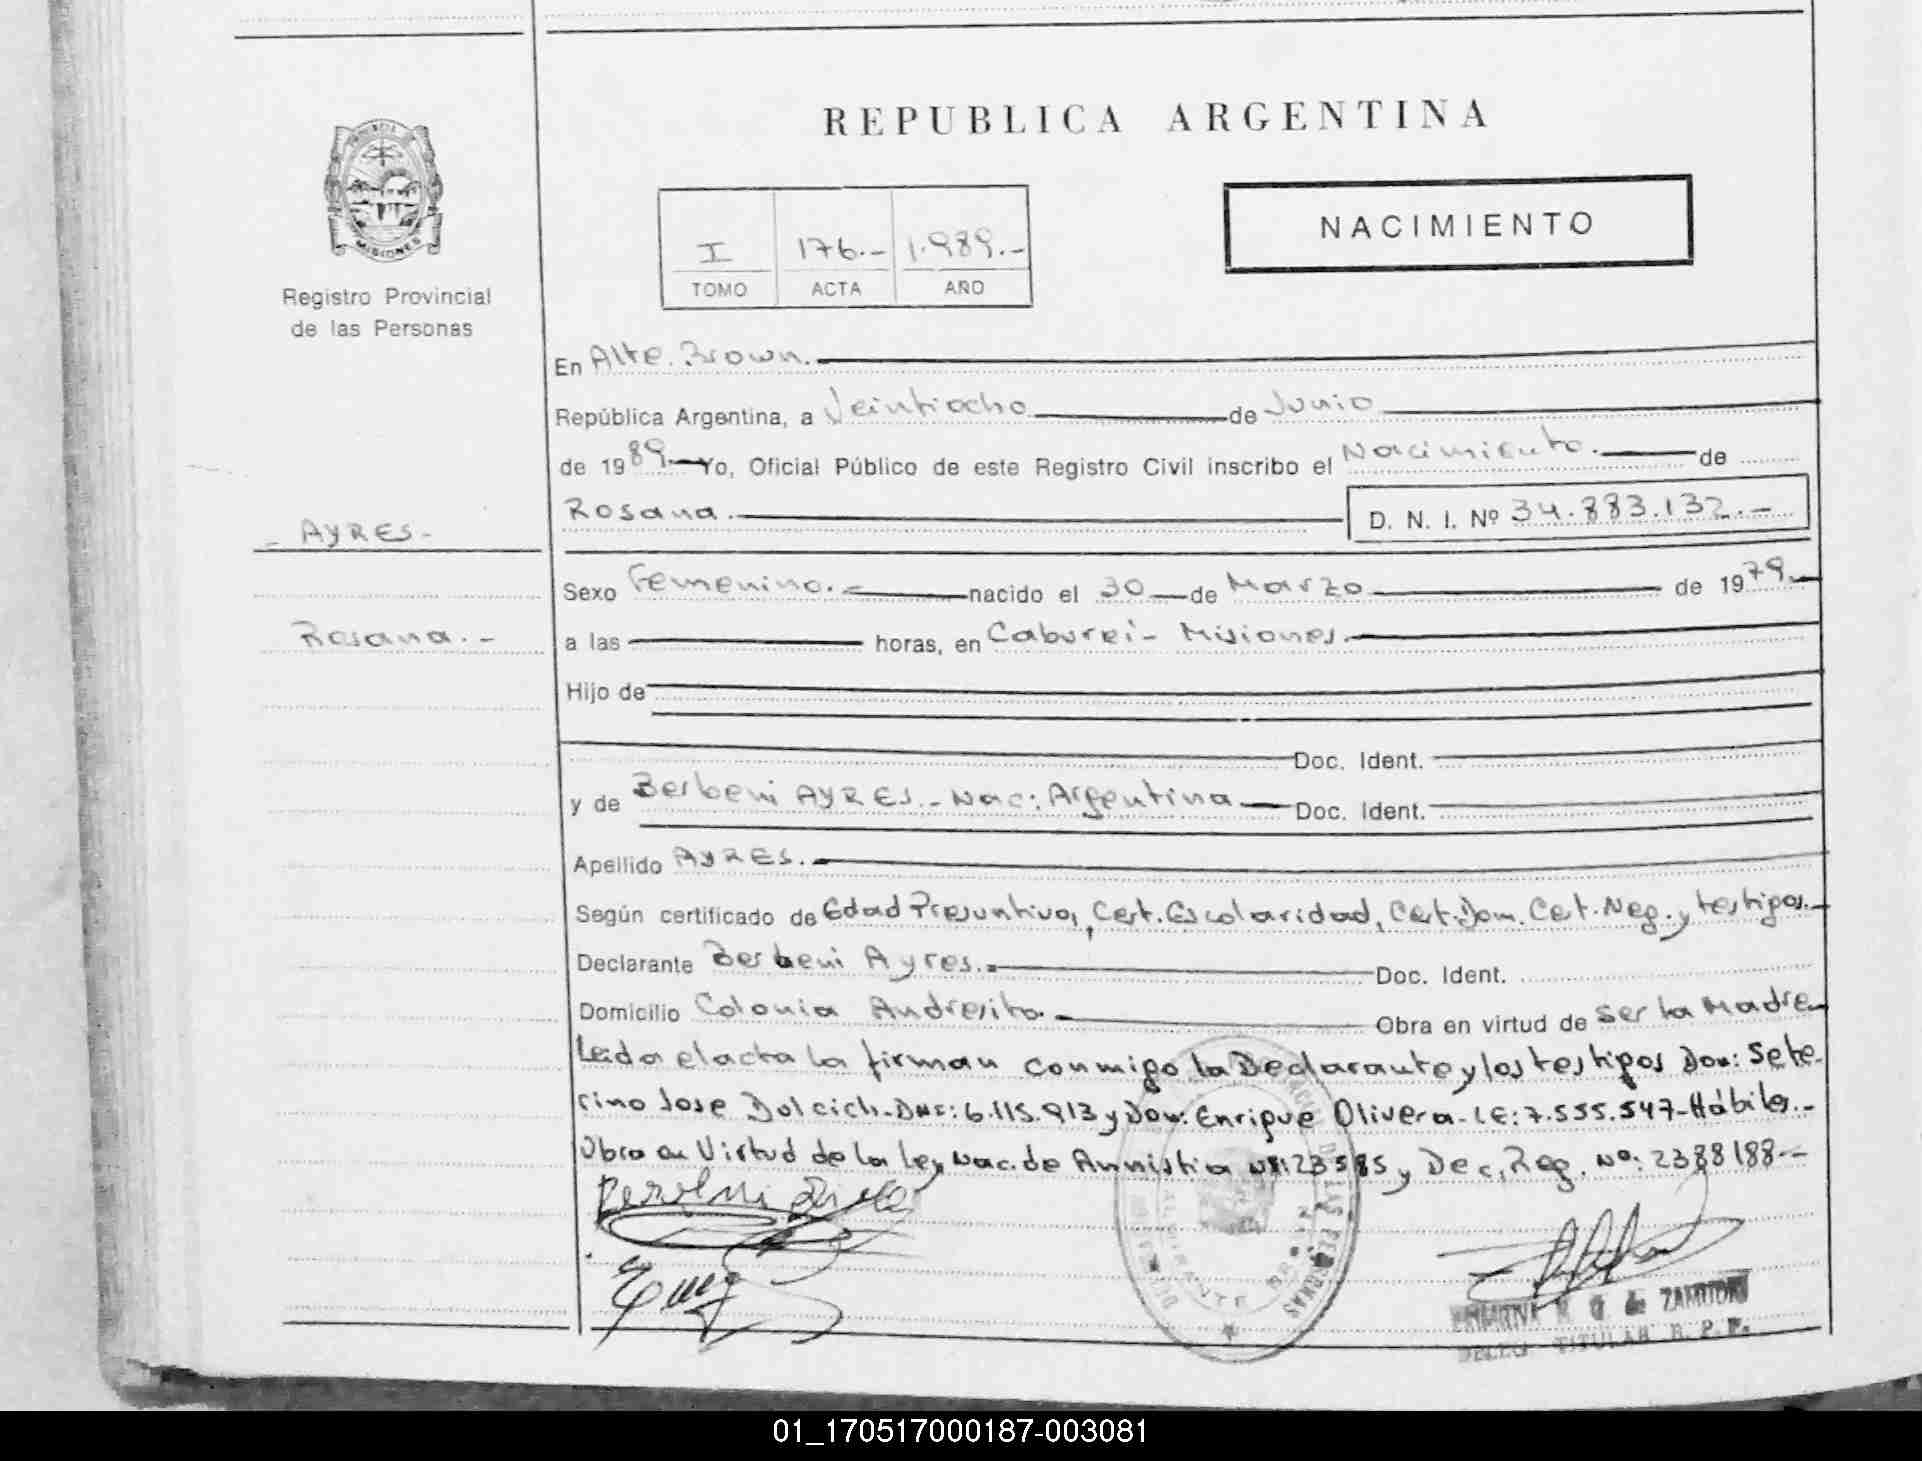 REPUBLICA ARGENTINA
NACIMIENTO
MISIONES
Registro Provincial
de las Personas
I 176.- 1.989.-
TOMO ACTA AÑO
En Alte. Brown.
República Argentina, a Veintiocho de Junio
de 1989.- Yo, Oficial Público de este Registro Civil inscribo el Nacimiento. de
Rosana. D. N. I. Nº 34.883.132.-
- AYRES-
Sexo Femenino.- nacido el 30 de Marzo de 1979.-
Rosana.-
a las horas, en Caburei- Misiones.
Hijo de
Doc. Ident.
y de Berbeni AYRES.- Nac: Argentina Doc. Ident.
Apellido AYRES.-
Según certificado de Edad Presuntiva, Cert. Escolaridad, Cert. Dom. Cert. Neg. y testigos.-
Declarante Berbeni Ayres.- Doc. Ident.
Domicilio Colonia Andresito.- Obra en virtud de Ser la Madre
Leida el acta la firman conmigo la Declarante y los testigos Don: Sete-
rino Jose Dolcich- : 6.115.913 y Don: Enrique Olivera- LE: 7.555.547- Hábiles.-
Obra en Virtud de la Ley Nac. de Amnistia Nº: 23585 y Dec. Reg. Nº: 2388188--
DE LAS PERSONAS
ALMIRANTE BROWN
de ZAMUDIO
TITULAR R. P. P.
01_170517000187-003081